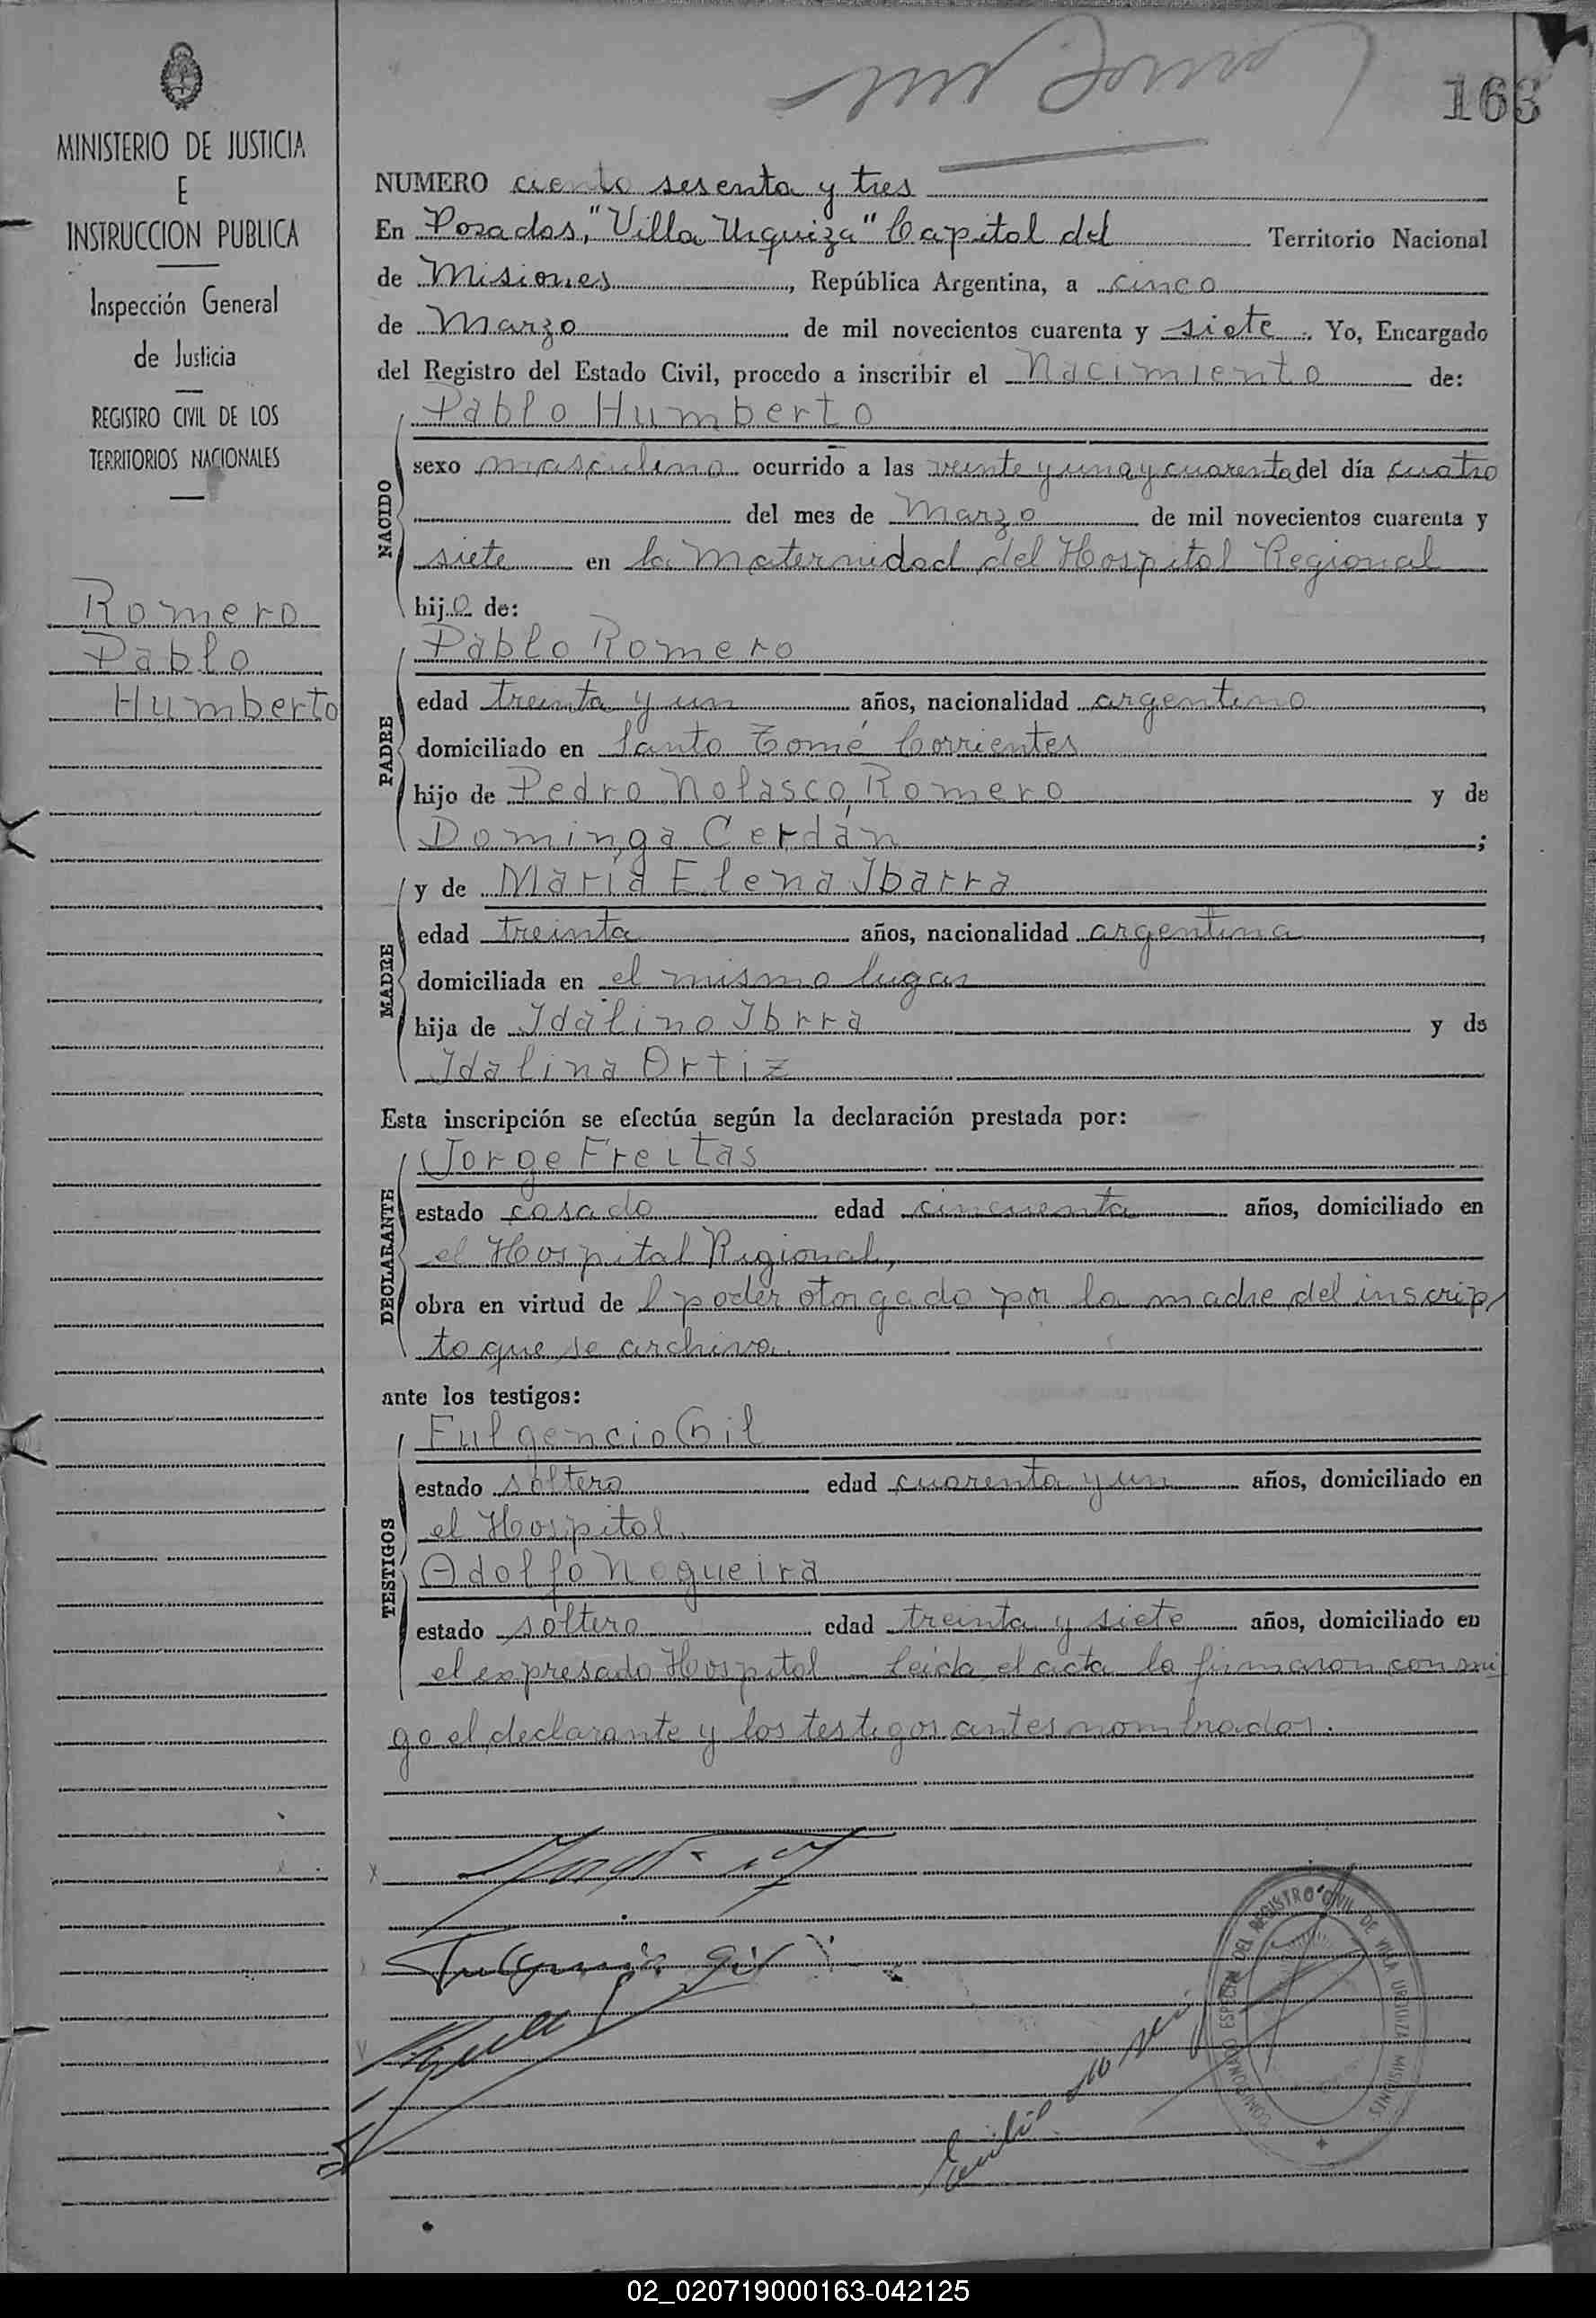 163
MINISTERIO DE JUSTICIA
E
INSTRUCCION PUBLICA
Inspección General
de Justicia
REGISTRO CIVIL DE LOS
TERRITORIOS NACIONALES
Romero
Pablo
Humberto
NUMERO ciento sesenta y tres
En Posadas, "Villa Urquiza" Capital del Territorio Nacional
de Misiones, República Argentina, a cinco
de Marzo de mil novecientos cuarenta y siete. Yo, Encargado
del Registro del Estado Civil, procedo a inscribir el Nacimiento de:
Pablo Humberto
NACIDO
sexo masculino ocurrido a las veinte y una y cuarenta del día cuatro
del mes de Marzo de mil novecientos cuarenta y
siete en la Maternidad del Hospital Regional
hijo de:
Pablo Romero
PADRE
edad treinta y un años, nacionalidad argentino,
domiciliado en Santo Tomé Corrientes
hijo de Pedro Nolasco Romero y de
Dominga Cerdán;
y de María Elena Ibarra
MADRE
edad treinta años, nacionalidad argentina,
domiciliada en el mismo lugar
hija de Idalino Ibrra y de
Idalina Ortiz
Esta inscripción se efectúa según la declaración prestada por:
Jorge Freitas
DECLARANTE
estado casado edad cincuenta años, domiciliado en
el Hospital Regional,
obra en virtud de l poder otorgado por la madre del inscrip
to que se archiva.
ante los testigos:
Fulgencio Gil
TESTIGOS
estado soltero edad cuarenta y un años, domiciliado en
el Hospital.
Adolfo Nogueira
estado soltero edad treinta y siete años, domiciliado en
el expresado Hospital. Leida el acta la firmaron conmi
go el declarante y los testigos antes nombrados.
Fulgencio Gil
COMISIONADO ESPECIAL DEL REGISTRO CIVIL DE VILLA URQUIZA MISIONES
02_020719000163-042125